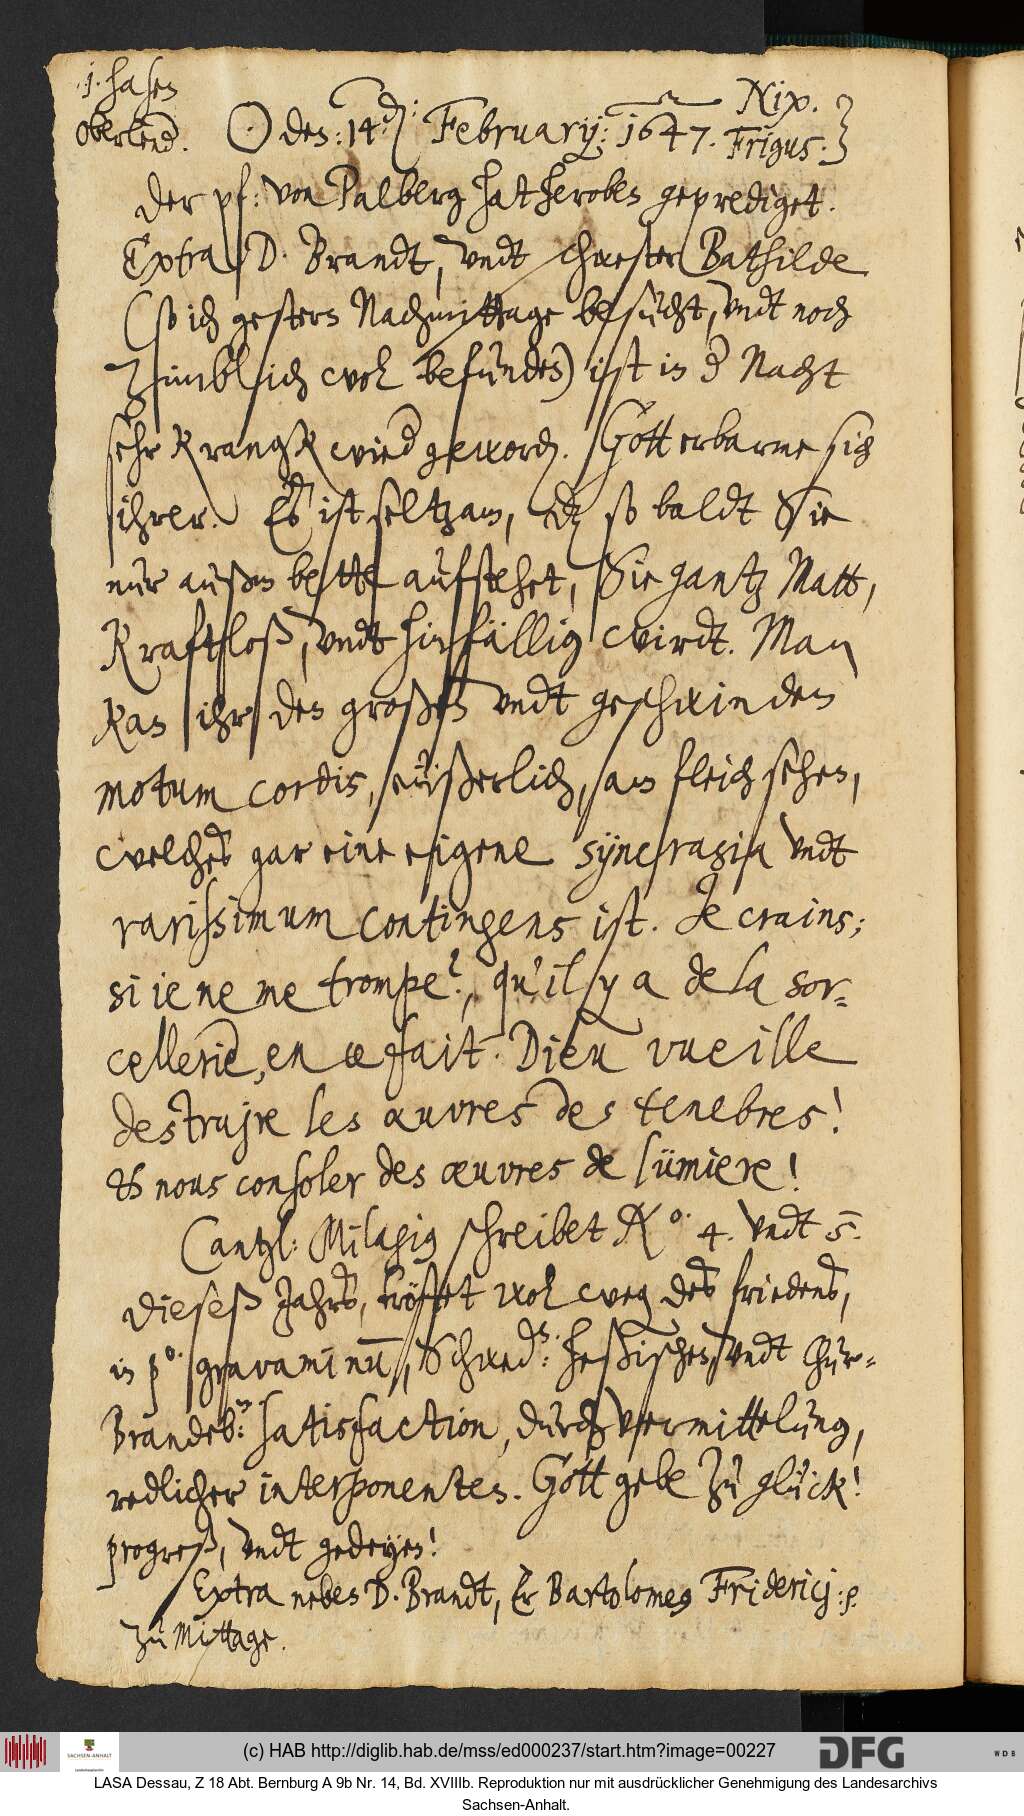 1. hasen
Oberlend.
☉ den: 14.d: February: 1647.
Nix.
Frigus.
Der pf: von Palberg hat heroben geprediget.
Extra D. Brandt, undt schwester Bathilde
(so ich gestern Nachmittage besucht, undt noch
zimblich wol befunden) ist in d Nacht
sehr Krangk wied geword. Gott erbarme sich
ihrer. Es ist seltzam, dz so baldt Sie
nur außm bette aufstehet, Sie gantz Matt,
Kraftloß, undt hinfällig wirdt. Man
kan ihr den großen undt geschwinden
motum cordis, eußerlich, am fleisch sehen,
welches gar eine eigene syncrasia undt
rarissimum contingens ist. Je crains;
si ie ne me trompe?, qu'il y a de la sor=
cellerie, en ce fait. Dieu vueille
destruire les œuvres des tenebres!
et nous consoler des œuvres de lümiere!
Cantzl: Milagig schreibet Ao. 4. undt 5.
dieses Jahrs, tröstet wol weg des friedens,
in po. gravaminū, Schweds. heßischen, undt Chur=
Brandeb.n satisfaction, durch vermittelung,
redlicher interponenten. Gott gebe zu glück!
progreß, undt gedeyen!
Extra neben D. Brandt, Er Bartolomeg Friderici: p.
zu Mittage.
(c) HAB http://diglib.hab.de/mss/ed000237/start.htm?image=00227
SACHSEN-ANHALT
DFG
WDB
LASA Dessau, Z 18 Abt. Bernburg A 9b Nr. 14, Bd. XVIIIb. Reproduktion nur mit ausdrücklicher Genehmigung des Landesarchivs
Sachsen-Anhalt.